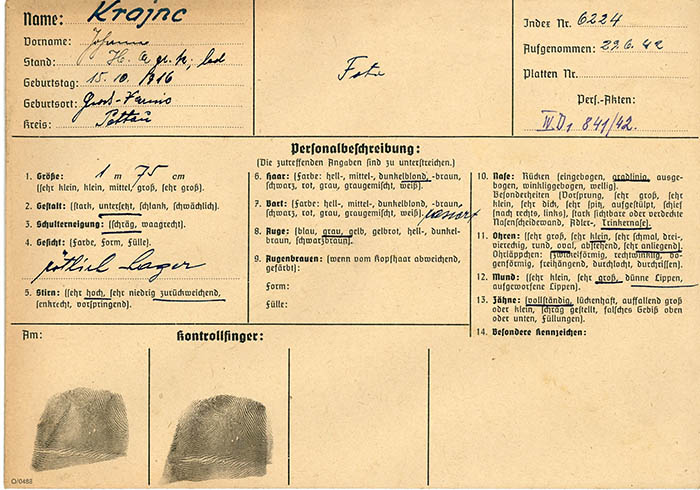 Name: Krajnc
Vorname: Johann
Stand: led
Geburtstag: 15.10.1916
Geburtsort: Gross-
Kreis: Pettau
Foto
Index Nr. 6224
Aufgenommen: 29.6.42
Platten Nr.
Pers.-Akten:
IV.D1 841/42.
Personalbeschreibung:
(Die zutreffenden Angaben sind zu unterstreichen.)
1. Größe: 1 m 75 cm
(sehr klein, klein, mittel, groß, sehr groß).
2. Gestalt: (stark, untersetzt, schlank, schwächlich).
3. Schulterneigung: (schräg, waagrecht)
4. Gesicht: (Farbe, Form, Fülle).
rötlich
5. Stirn: (sehr hoch, sehr niedrig zurückweichend,
senkrecht, vorspringend).
6. Haar: (Farbe: hell-, mittel-, dunkelblond, -braun,
schwarz, rot, grau, graugemischt, weiß).
7. Bart: (Farbe: hell-, mittel-, dunkelblond, -braun,
schwarz, rot, grau, graugemischt, weiß)
8. Auge: (blau, grau, gelb, gelbrot, hell-, dunkel-
braun, schwarzbraun).
9. Augenbrauen: (wenn vom Kopfhaar abweichend,
gefärbt):
Form:
Fülle:
10. Nase: Rücken (eingebogen, gradlinig, ausge-
bogen, winkliggebogen, wellig).
Besonderheiten (Vorsprung, sehr groß, sehr
klein, sehr dick, sehr spitz, aufgestülpt, schief
(nach rechts, links), stark sichtbare oder verdeckte
Nasenscheidewand, Adler-, Trinkernase).
11. Ohren: (sehr groß, sehr klein, sehr schmal, drei-,
viereckig, rund, oval, abstehend, sehr anliegend).
Ohrläppchen: (zwiefelförmig, rechtwinklig, bo-
genförmig, freihängend, durchlocht, durchrissen).
12. Mund: (sehr klein, sehr groß, dünne Lippen,
aufgeworfene Lippen).
13. Zähne: (vollständig, lückenhaft, auffallend groß
oder klein, schräg gestellt, falsches Gebiß oben
oder unten, Füllungen).
14. Besondere Kennzeichen:
Am:
Kontrollfinger:
O/0488